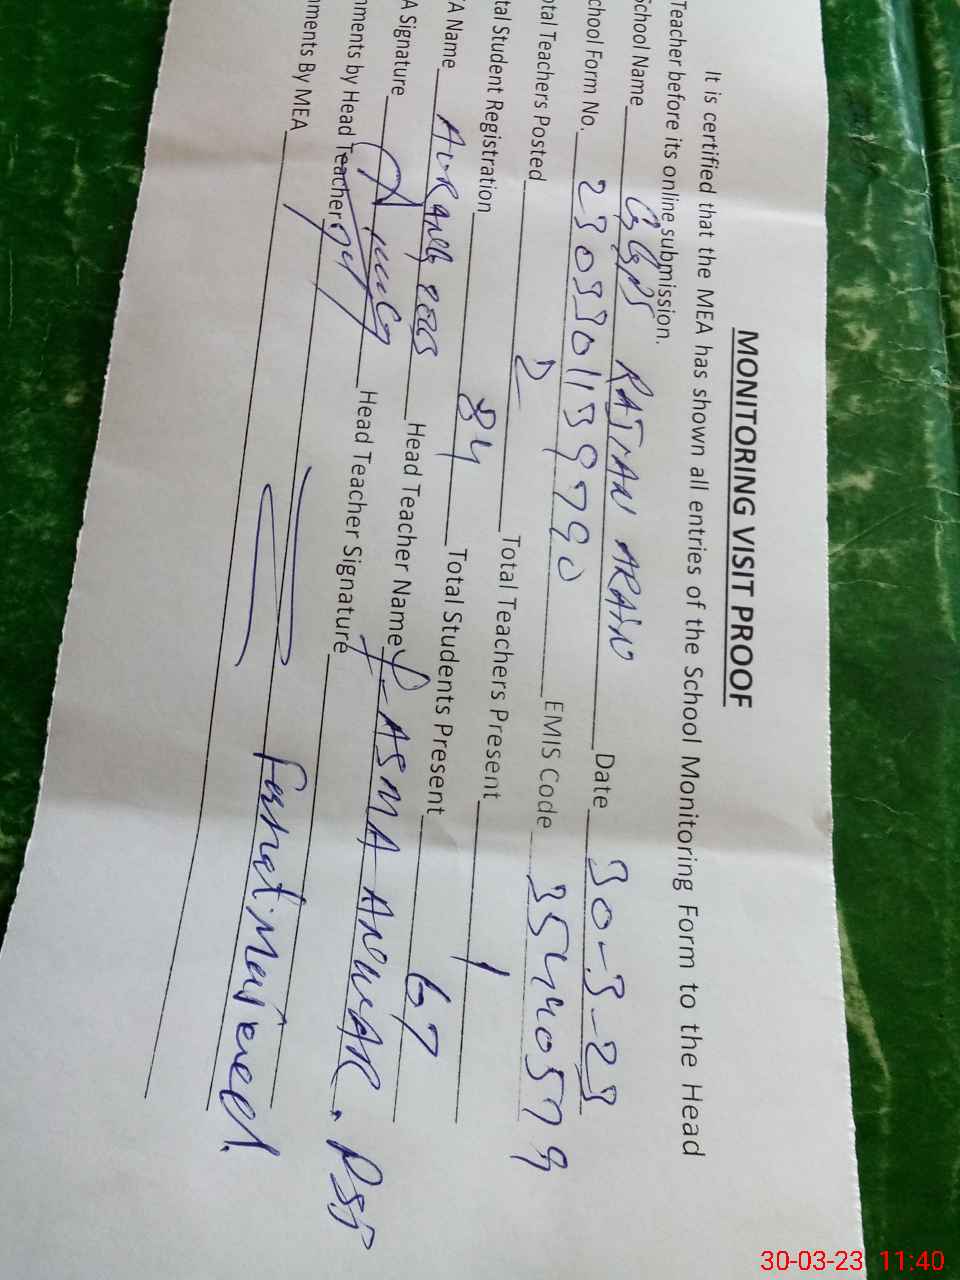 MONITORING VISIT PROOF
It is certified that the MEA has shown all entries of the School Monitoring Form to the Head
Teacher before its online submission.
School Name GGPS RAJIAN ARAIN Date 30-3-23
chool Form No. 2303301139790 EMIS Code 35440579
otal Teachers Posted 2 Total Teachers Present 1
tal Student Registration 84 Total Students Present 67
A Name AURANG ZEB Head Teacher Name ASMA ANWAR. PST
A Signature Head Teacher Signature
nments by Head Teacher
nments By MEA
30-03-23 11:40